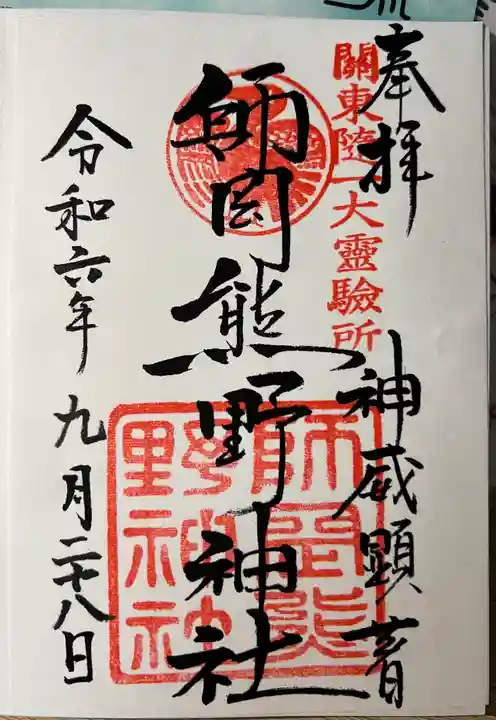 奉拝
神威顕著
關東隨一大靈驗所
師岡熊野神社
師岡熊
野神社
令和六年九月二十八日